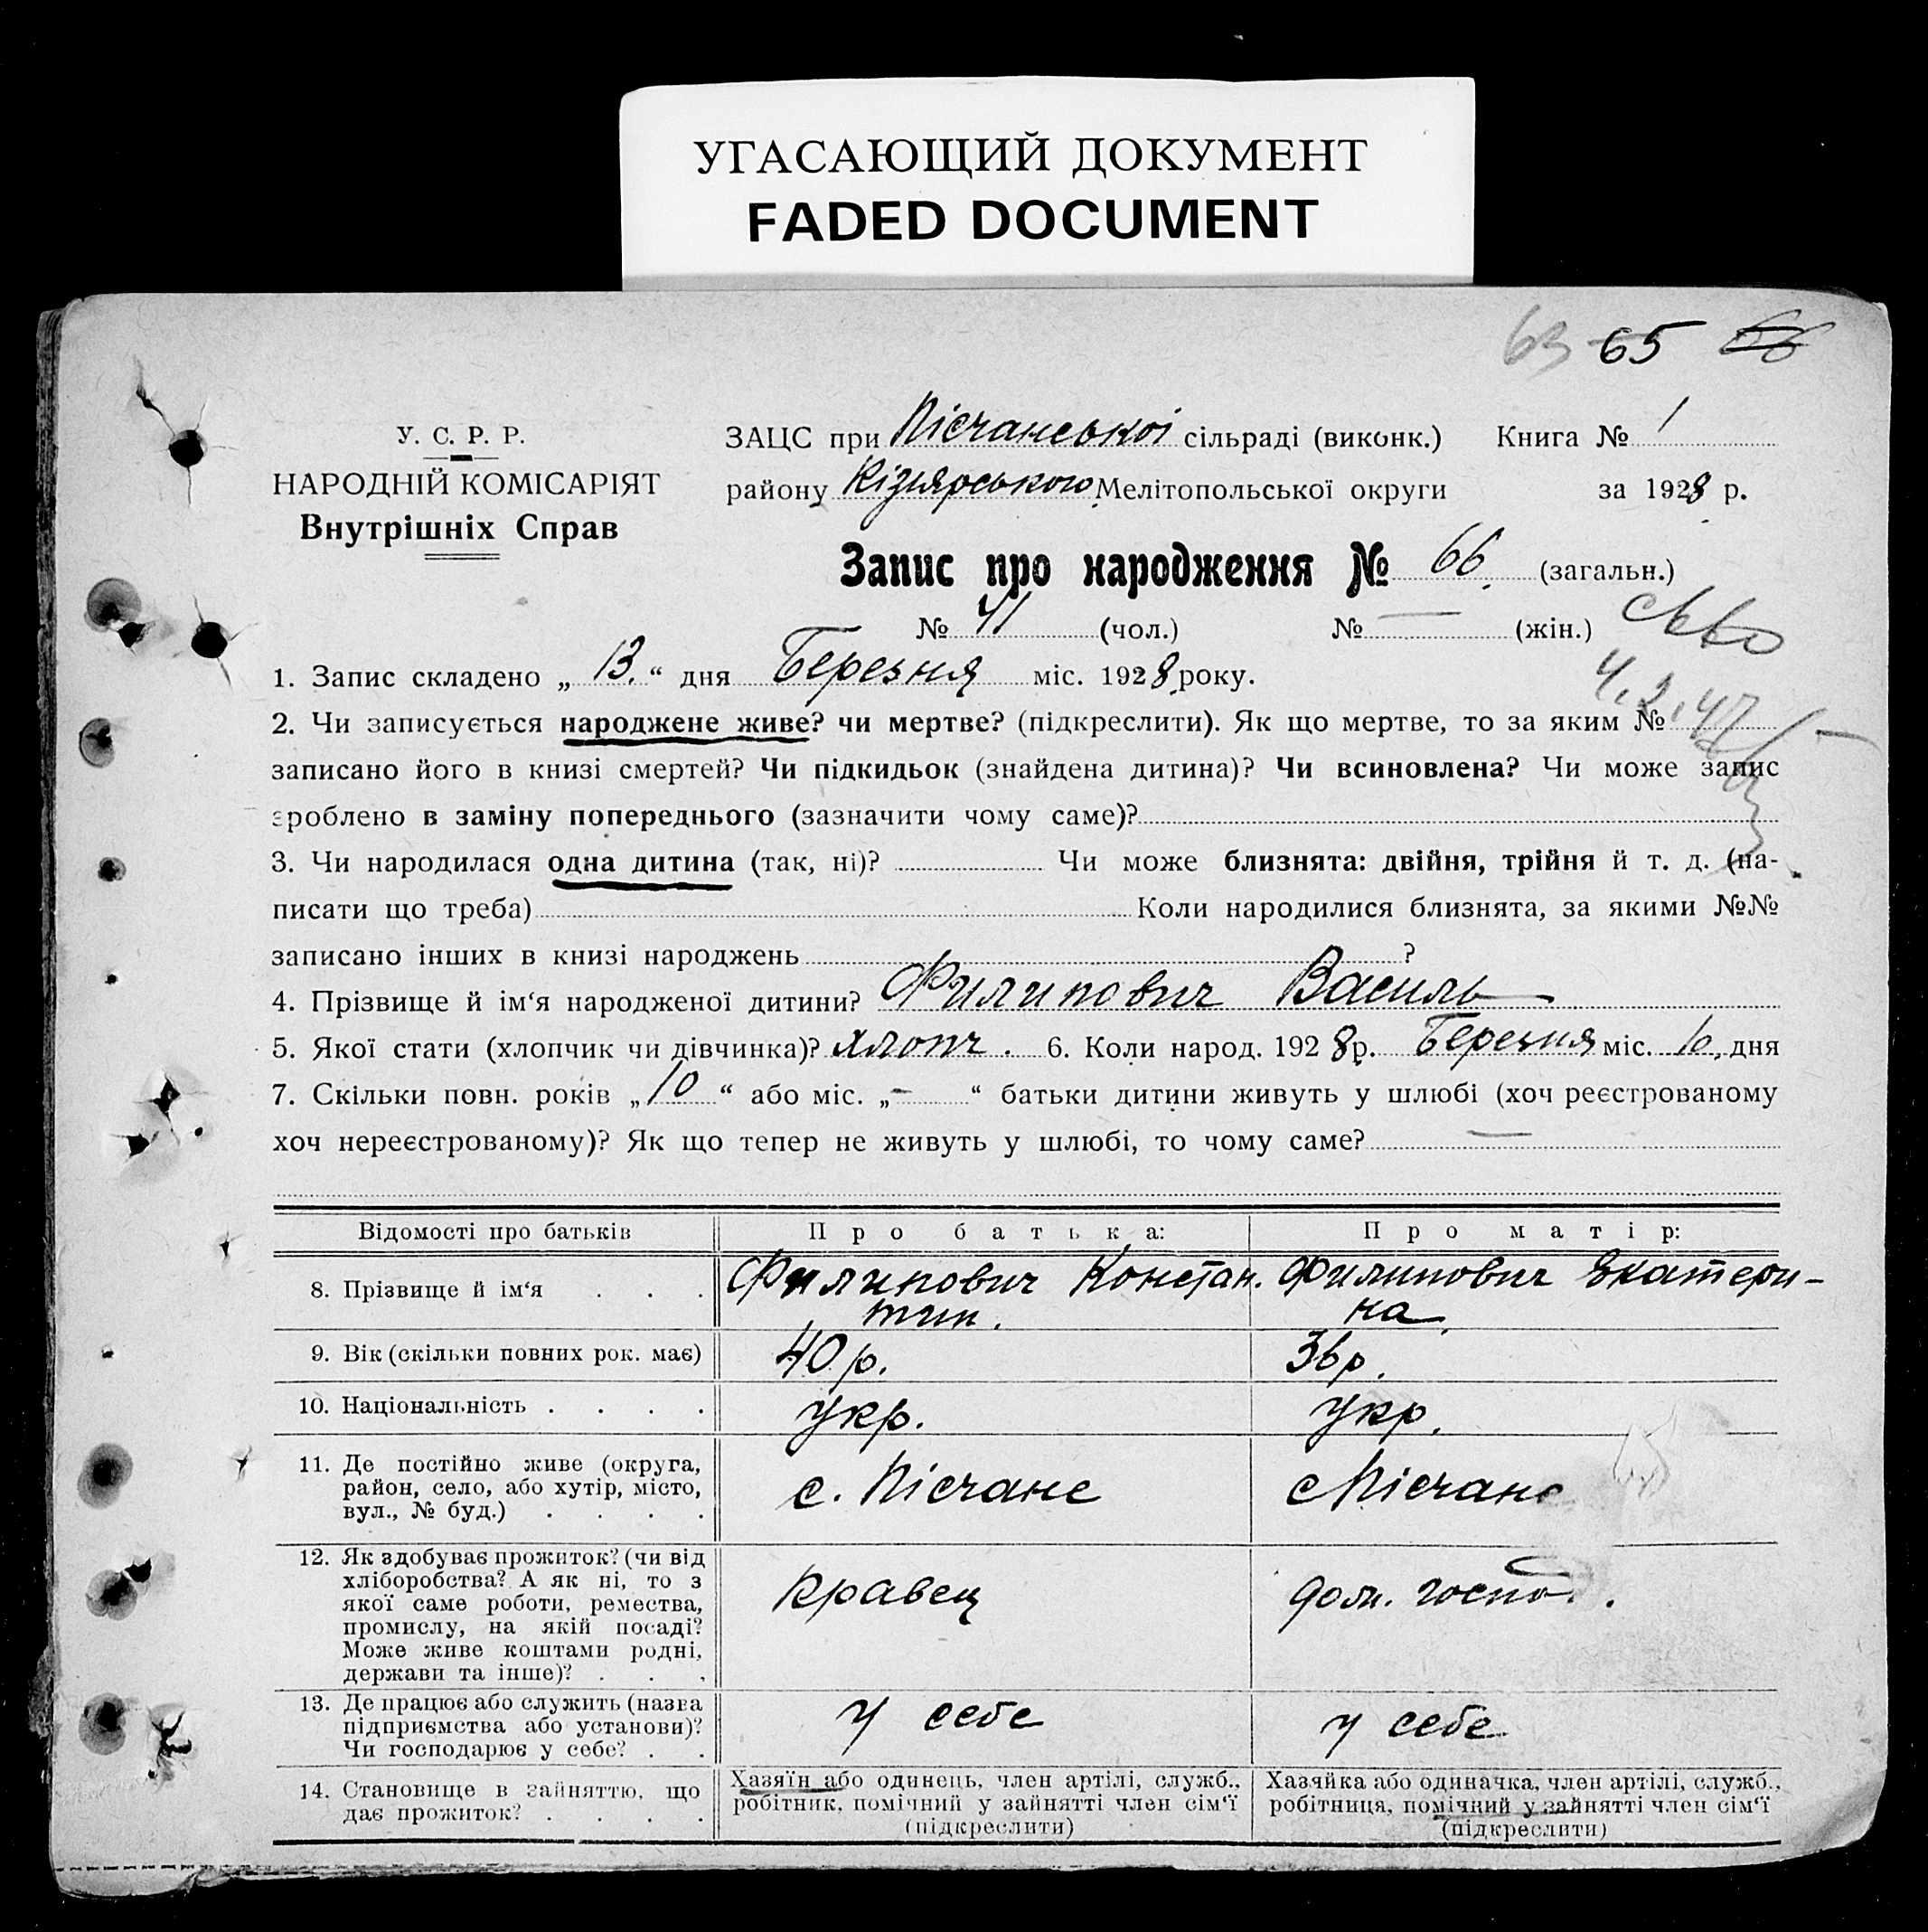 УГАСАЮЩИЙ ДОКУМЕНТ
FADED DOCUMENT
63 65 66
У. С. Р. Р.
НАРОДНІЙ КОМІСАРІЯТ
Внутрішніх Справ
ЗАЦС при Пісчанської сільраді (виконк.) Книга № 1
району Кізіярського Мелітопольської округи за 1928 р.
Запис про народження № 66. (загальн.)
№ 41 (чол.) № — (жін.)
1. Запис складено „ 13. “ дня Березня міс. 1928 року.
2. Чи записується народжене живе? чи мертве? (підкреслити). Як що мертве, то за яким №
записано його в книзі смертей? Чи підкидьок (знайдена дитина)? Чи всиновлена? Чи може запис
зроблено в заміну попереднього (зазначити чому саме)?
3. Чи народилася одна дитина (так, ні)? Чи може близнята: двійня, трійня й т. д. (на-
писати що треба) Коли народилися близнята, за якими №№
записано інших в книзі народжень ?
4. Прізвище й ім‘я народженої дитини? Филипович Василь
5. Якої стати (хлопчик чи дівчинка)? хлопч. 6. Коли народ. 1928 р. Березня міс. 10, дня
7. Скільки повн. років „10“ або міс. „—“ батьки дитини живуть у шлюбі (хоч реєстрованому
хоч нереєстрованому)? Як що тепер не живуть у шлюбі, то чому саме? —
Відомості про батьків Про батька: Про матір:
8. Прізвище й ім‘я . . . Филипович Констан. Филипович Екатери-
тин. на.
9. Вік (скільки повних рок. має) 40 р. 36 р.
10. Національність . . . . укр. укр.
11. Де постійно живе (округа,
район, село, або хутір, місто,
вул., № буд.) . . . .
с. Пісчане с Пісчане
12. Як здобуває прожиток? (чи від
хліборобства? А як ні, то з
якої саме роботи, ремества,
промислу, на якій посаді?
Може живе коштами родні,
держави та інше)? . . .
кравец дом. госпо.
13. Де працює або служить (назва
підприємства або установи)?
Чи господарює у себе? . .
у себе у себе
14. Становище в зайняттю, що
дає прожиток? . . . .
Хазяїн або одинець, член артілі, служб.,
робітник, помічний у зайнятті член сім‘ї
(підкреслити)
Хазяйка або одиначка, член артілі, служб.,
робітниця, помічний у зайнятті член сім‘ї
(підкреслити)